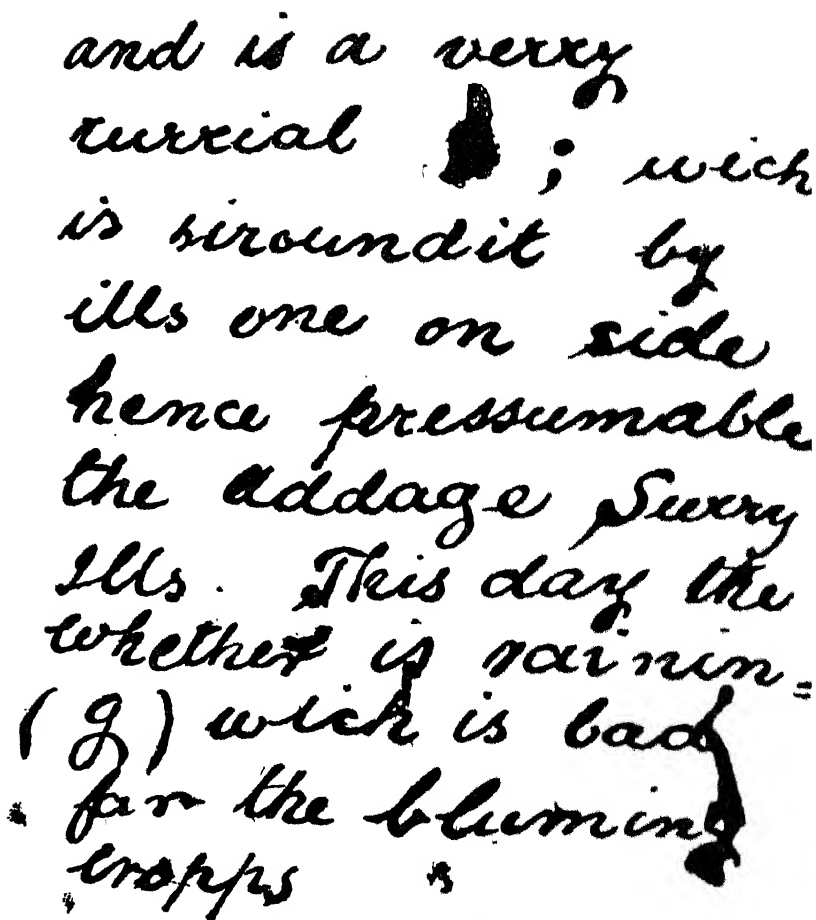 and is a verry
rurrial ; wich
is siroundit by
ills one on side
hence pressumable
the addage Surry
Ills. This day the
whether is rainin=
(g) wich is bad
for the bluming
cropps